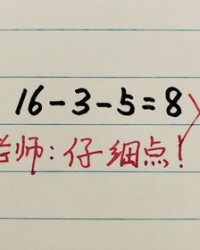 16-3-5=8
老师:仔细点!